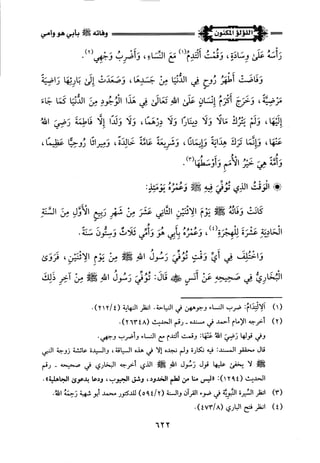 اللؤلؤ المكنون
وفاته ﷺ بأبي هو وأمي
رأسه على وسادة، وقمت ألتدم(١) مع النساء، وأضرب وجهي(٢).
وفاضت أطهر روح في الدنيا من جسدها، وصعدت إلى بارئها راضية
مرضية، وخرج أكرم إنسان على الله تعالى في هذا الوجود من الدنيا كما جاء
إليها، ولم يترك مالا ولا دينارا ولا درهما، ولا ولدا إلا فاطمة رضي الله
عنها، وإنما ترك هداية وإيمانا، وشريعة عامة خالدة، وميراثا روحيا عظيما،
وأمة هي خير الأمم وأوسطها(٣).
* الوقت الذي توفي فيه ﷺ وعمره يومئذ:
كانت وفاته ﷺ يوم الاثنين الثاني عشر من شهر ربيع الأول من السنة
الحادية عشرة للهجرة(٤)، وعمره بأبي هو وأمي ثلاث وستون سنة.
واختلف في أي وقت توفي رسول الله ﷺ من يوم الاثنين، فروى
البخاري في صحيحه عن أنس ﷺ قال: توفي رسول الله ﷺ من آخر ذلك
(١) الالتدام: ضرب النساء وجوههن في النياحة. انظر النهاية (٢١٢/٤).
(٢) أخرجه الإمام أحمد في مسنده - رقم الحديث (٢٦٣٤٨).
وفي قولها رضي الله عنها: وقمت ألتدم مع النساء وأضرب وجهي.
قال محققو المسند: فيه نكارة، ولم نجده إلا في هذه السياقة، والسيدة عائشة زوجة النبي
ﷺ لا يخفى عليها قول رسول الله ﷺ الذي أخرجه البخاري في صحيحه - رقم
الحديث (١٢٩٤): «ليس منا من لطم الخدود، وشق الجيوب، ودعا بدعوى الجاهلية».
(٣) انظر السيرة النبوية في ضوء القرآن والسنة (٥٩٤/٢) للدكتور محمد أبو شهبة رحمه الله.
(٤) انظر فتح الباري (٤٧٣/٨).
٦٢٢